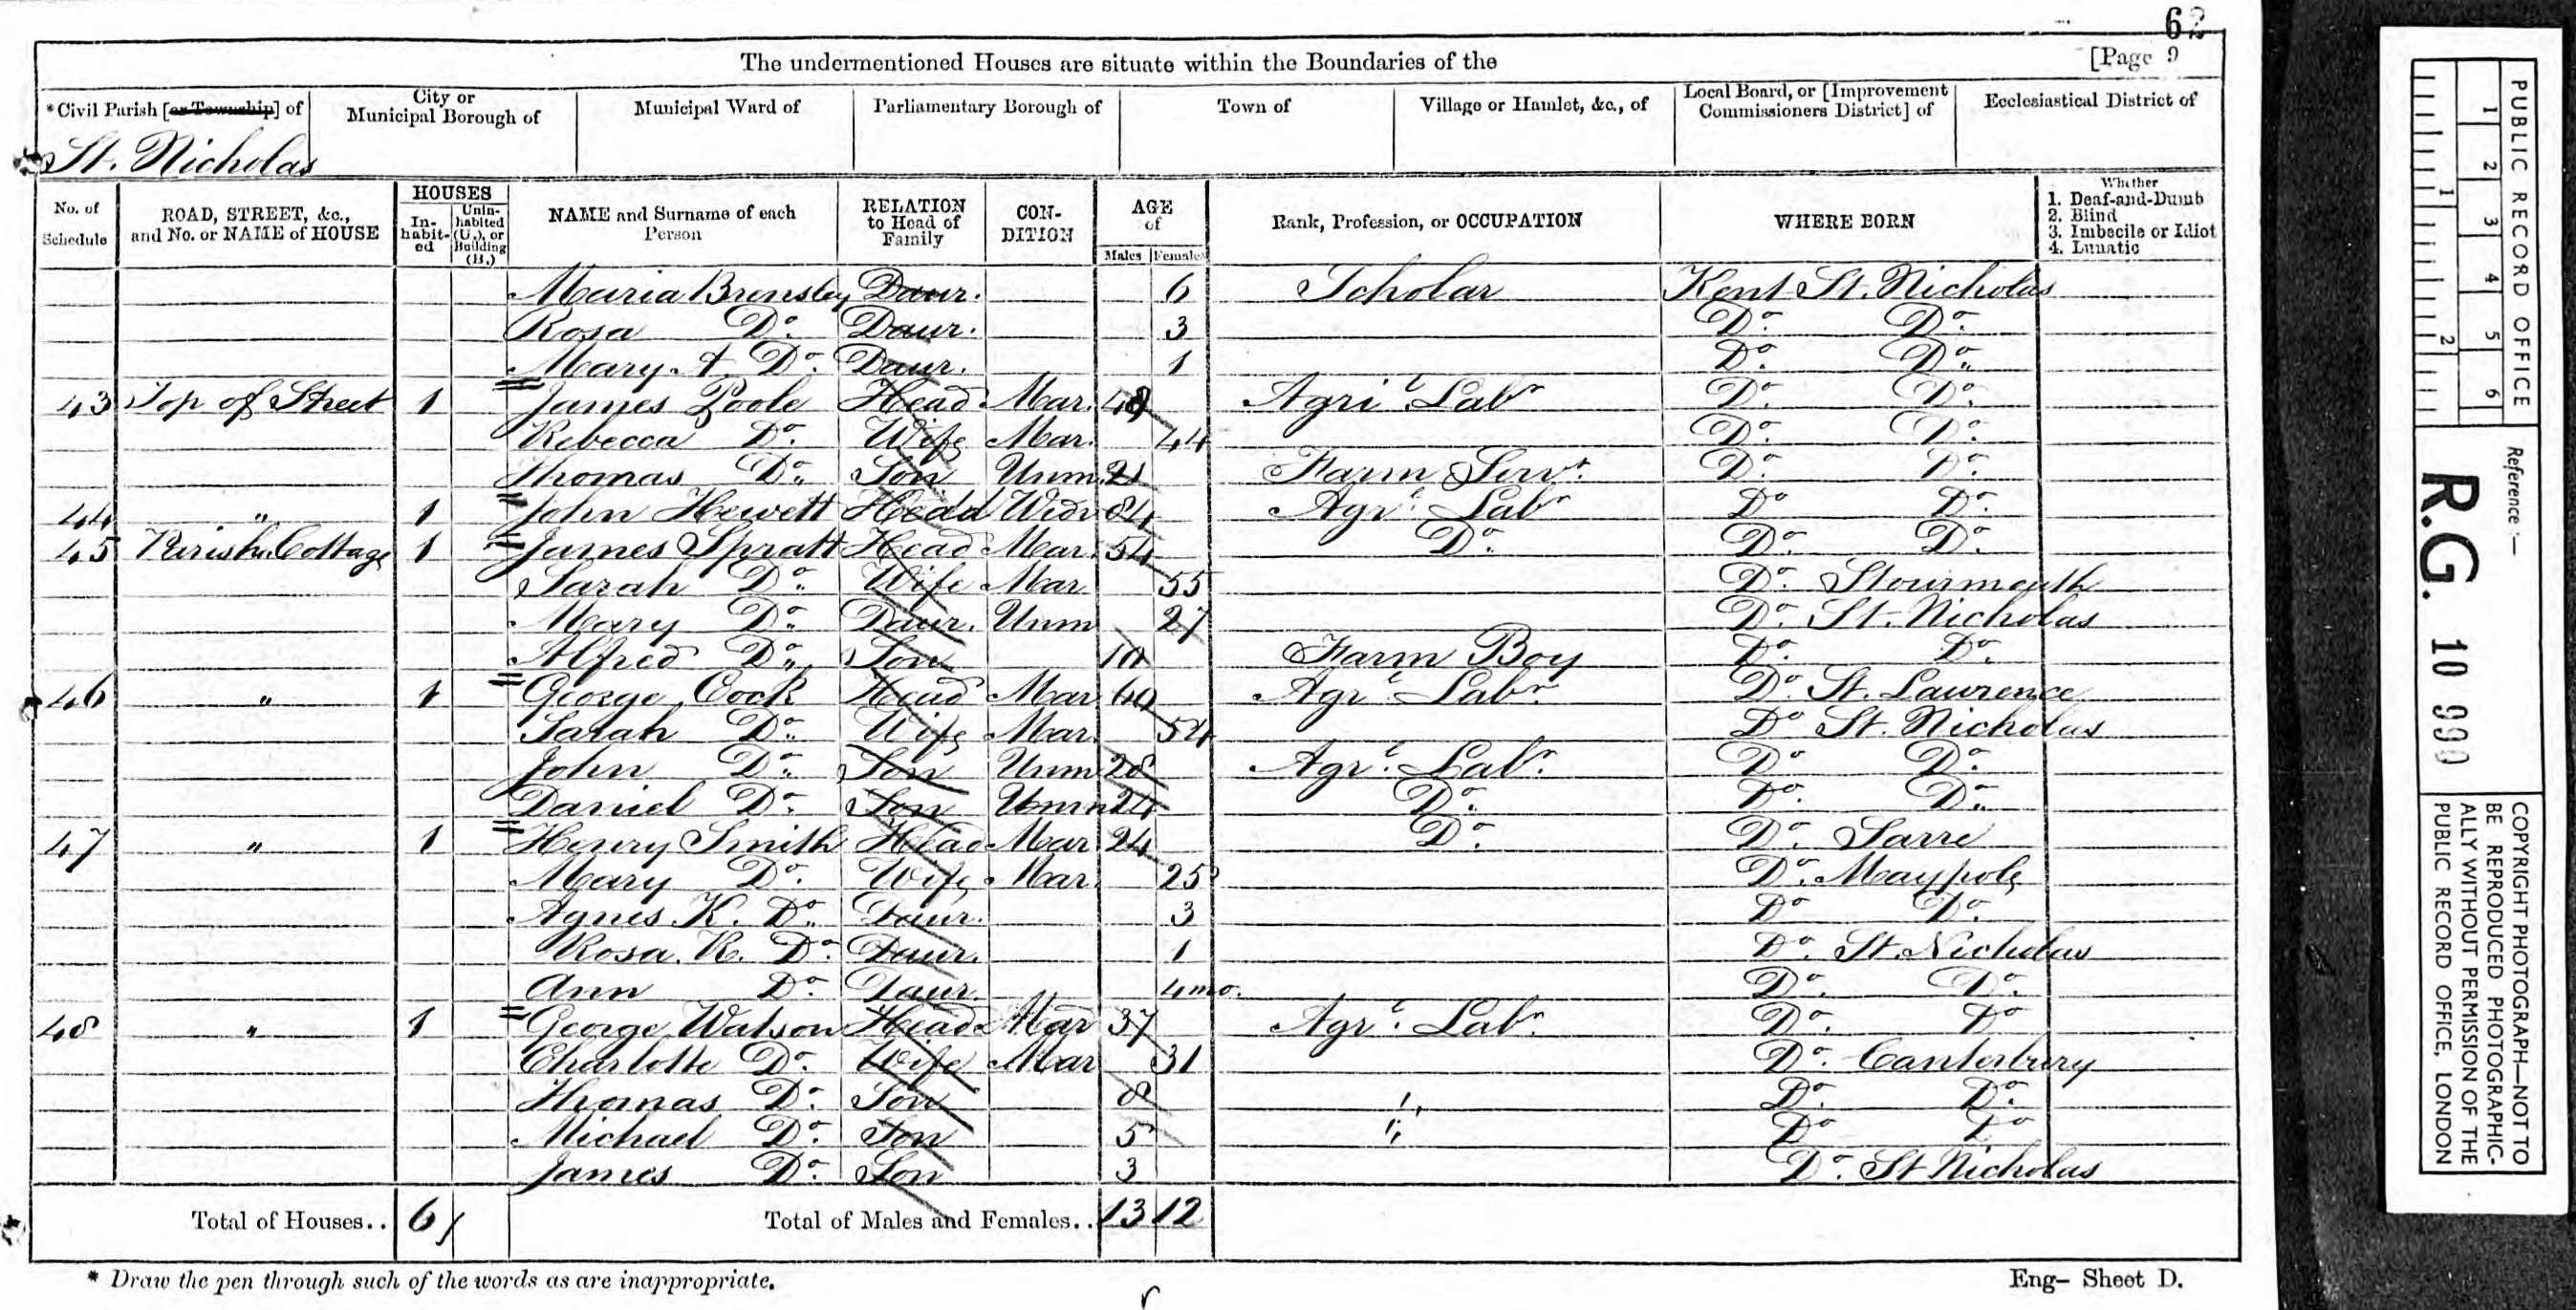 62
The undermentioned Houses are situate within the Boundaries of the [Page 9
*Civil Parish [or Township] of City or Municipal Borough of Municipal Ward of Parliamentary Borough of Town of Village or Hamlet, &c., of Local Board, or [Improvement Commissioners District] of Ecclesiastical District of
St. Nicholas
No. of Schedule ROAD, STREET, &c., and No. or NAME of HOUSE HOUSES In-habit-ed Unin-habited (U.), or Building (B.) NAME and Surname of each Person RELATION to Head of Family CON-DITION AGE of Males Females Rank, Profession, or OCCUPATION WHERE BORN Whether 1. Deaf-and-Dumb 2. Blind 3. Imbecile or Idiot 4. Lunatic
Maria Brensley Daur. 6 Scholar Kent St. Nicholas
Rosa Do. Daur. 3 Do. Do.
Mary A. Do. Daur. 1 Do. Do.
43 Top of Street 1 James Poole Head Mar. 48 Agril Labr Do. Do.
Rebecca Do. Wife Mar. 44 Do. Do.
Thomas Do. Son Unm. 21 Farm Servt. Do. Do.
44 " 1 John Hewett Head Widr 84 Agrl. Labr Do Do.
45 Parish Cottage 1 James Spratt Head Mar. 54 Do. Do. Do.
Sarah Do. Wife Mar. 55 Do. Stourmouth
Mary Do. Daur. Unm 27 Do. St. Nicholas
Alfred Do. Son 10 Farm Boy Do. Do.
46 " 1 George Cock Head Mar 49 Agrl. Labr. Do. St. Lawrence
Sarah Do. Wife Mar. 54 Do St. Nicholas
John Do. Son Unm 28 Agrl. Labr. Do Do.
Daniel Do. Son Unm 24 Do. Do. Do.
47 " 1 Henry Smith Head Mar 24 Do. Do. Sarre
Mary Do. Wife Mar. 25 Do. Maypole
Agnes K. Do. Daur. 3 Do Do.
Rosa R. Do. Daur. 1 Do. St. Nicholas
Ann Do. Daur. 4mo. Do. Do.
48 " 1 George Watson Head Mar 37 Agrl. Labr. Do. Do
Charlotte Do. Wife Mar 31 Do. Canterbury
Thomas Do. Son 8 " Do. Do.
Michael Do. Son 5 " Do Do
James Do. Son 3 Do. St Nicholas
Total of Houses.. 6 Total of Males and Females.. 13 12
* Draw the pen through such of the words as are inappropriate. Eng- Sheet D.
PUBLIC RECORD OFFICE
1 2 3 4 5 6
1 2
Reference :-
R.G. 10 990
COPYRIGHT PHOTOGRAPH—NOT TO
BE REPRODUCED PHOTOGRAPHIC-
ALLY WITHOUT PERMISSION OF THE
PUBLIC RECORD OFFICE, LONDON